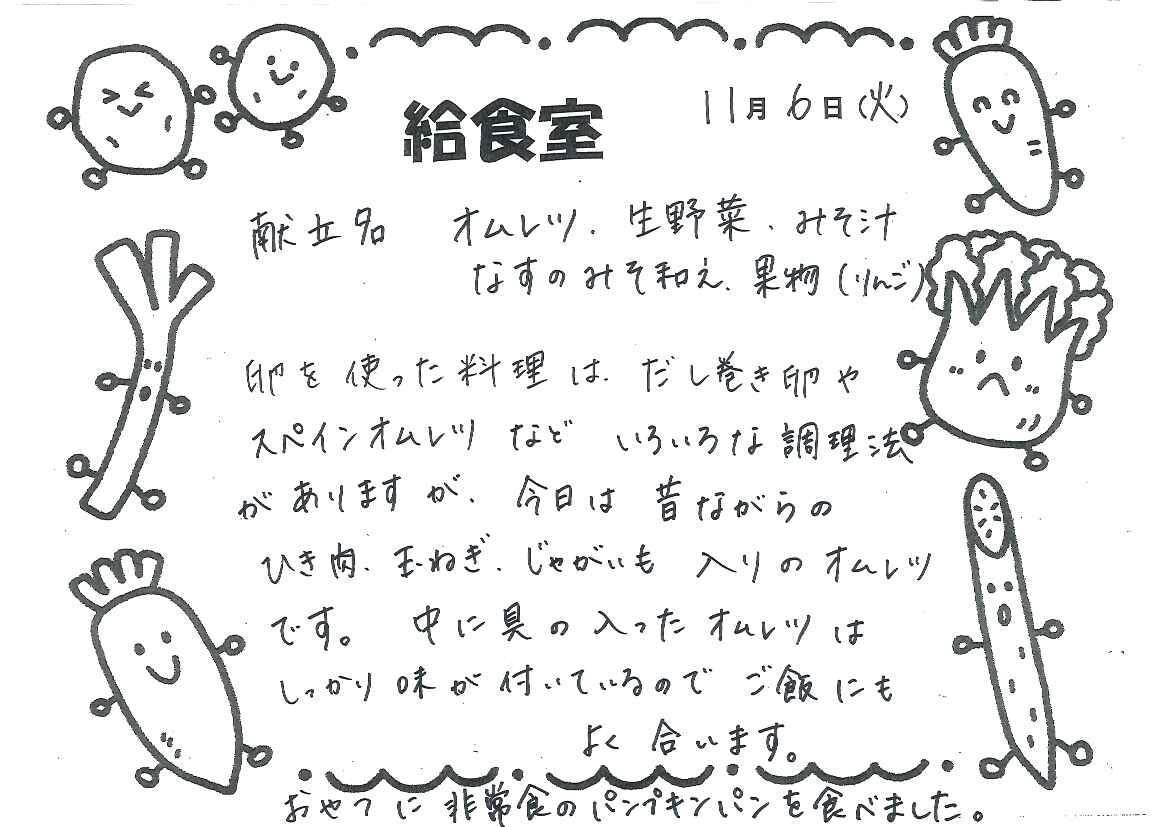 給食室
11月6日(火)
献立名 オムレツ、生野菜、みそ汁
なすのみそ和え、果物(りんご)
卵を使った料理は、だし巻き卵や
スペインオムレツ など いろいろな調理法
がありますが、今日は 昔ながらの
ひき肉、玉ねぎ、じゃがいも 入りのオムレツ
です。 中に具の入ったオムレツは
しっかり味が付いているので ご飯にも
よく合います。
おやつに非常食のパンプキンパンを食べました。